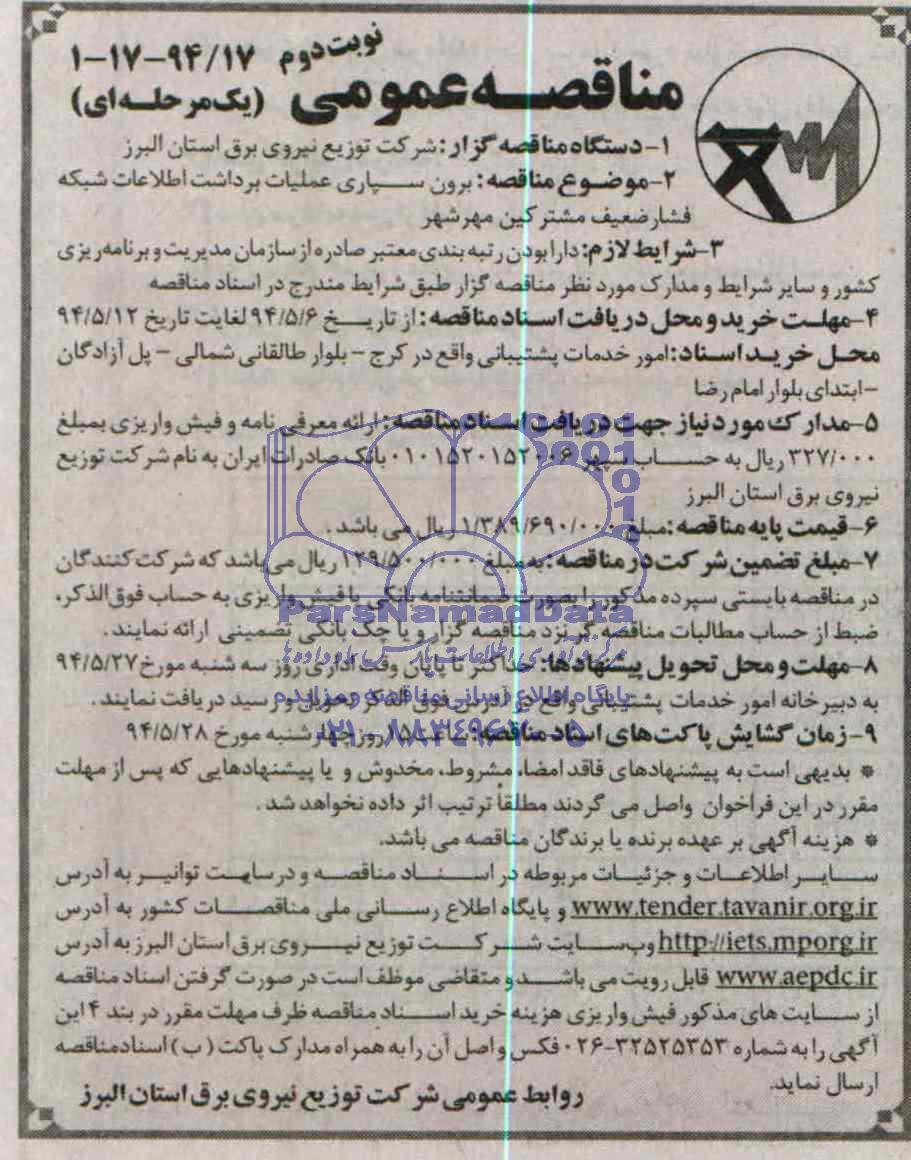 نوبت دوم
۹۴/۱۷-۱۷-۱
مناقصه عمومی (یک مرحله ای)
۱-دستگاه مناقصه گزار: شرکت توزیع نیروی برق استان البرز
۲-موضوع مناقصه: برون سپاری عملیات برداشت اطلاعات شبکه
فشارضعیف مشترکین مهرشهر
۳-شرایط لازم: دارابودن رتبه بندی معتبر صادره از سازمان مدیریت و برنامه ریزی
کشور و سایر شرایط و مدارک مورد نظر مناقصه گزار طبق شرایط مندرج در اسناد مناقصه
۴-مهلت خرید و محل دریافت اسناد مناقصه: از تاریخ ۹۴/۵/۶ لغایت تاریخ ۹۴/۵/۱۲
محل خرید اسناد: امور خدمات پشتیبانی واقع در کرج - بلوار طالقانی شمالی - پل آزادگان
-ابتدای بلوار امام رضا
۵-مدارک مورد نیاز جهت دریافت اسناد مناقصه: ارائه معرفی نامه و فیش واریزی بمبلغ
۳۲۷/۰۰۰ ریال به حساب سپهر ۰۱۰۱۵۲۰۱۵۲۰۰۶ بانک صادرات ایران به نام شرکت توزیع
نیروی برق استان البرز
۶-قیمت پایه مناقصه: مبلغ ۱/۳۸۹/۶۹۰/۰۰۰ ریال می باشد.
۷-مبلغ تضمین شرکت در مناقصه: به مبلغ ۱۲۹/۵۰۰/۰۰۰ ریال می باشد که شرکت کنندگان
در مناقصه بایستی سپرده مذکور را بصورت ضمانتنامه بانکی یا فیش واریزی به حساب فوق الذکر،
ضبط از حساب مطالبات مناقصه گر نزد مناقصه گزار و یا چک بانکی تضمینی ارائه نمایند.
۸-مهلت و محل تحویل پیشنهادها: حداکثر تا پایان وقت اداری روز سه شنبه مورخ ۹۴/۵/۲۷
به دبیرخانه امور خدمات پشتیبانی واقع در آدرس فوق الذکر تحویل و رسید دریافت نمایند.
۹-زمان گشایش پاکت های اسناد مناقصه: ساعت ۱۵ روز چهارشنبه مورخ ۹۴/۵/۲۸
* بدیهی است به پیشنهادهای فاقد امضا، مشروط، مخدوش و یا پیشنهادهایی که پس از مهلت
مقرر در این فراخوان واصل می گردند مطلقاً ترتیب اثر داده نخواهد شد.
* هزینه آگهی بر عهده برنده یا برندگان مناقصه می باشد.
سایر اطلاعات و جزئیات مربوطه در اسناد مناقصه و در سایت توانیر به آدرس
www.tender.tavanir.org.ir و پایگاه اطلاع رسانی ملی مناقصات کشور به آدرس
http://iets.mporg.ir وب سایت شرکت توزیع نیروی برق استان البرز به آدرس
www.aepdc.ir قابل رویت می باشد و متقاضی موظف است در صورت گرفتن اسناد مناقصه
از سایت های مذکور فیش واریزی هزینه خرید اسناد مناقصه ظرف مهلت مقرر در بند ۴ این
آگهی را به شماره ۳۲۵۲۵۳۵۳-۰۲۶ فکس و اصل آن را به همراه مدارک پاکت (ب) اسناد مناقصه
ارسال نماید.
روابط عمومی شرکت توزیع نیروی برق استان البرز
ParsNamadData
پایگاه اطلاع رسانی مناقصه و مزایده
۰۲۱-۸۸۳۴۹۶۷۰-۵